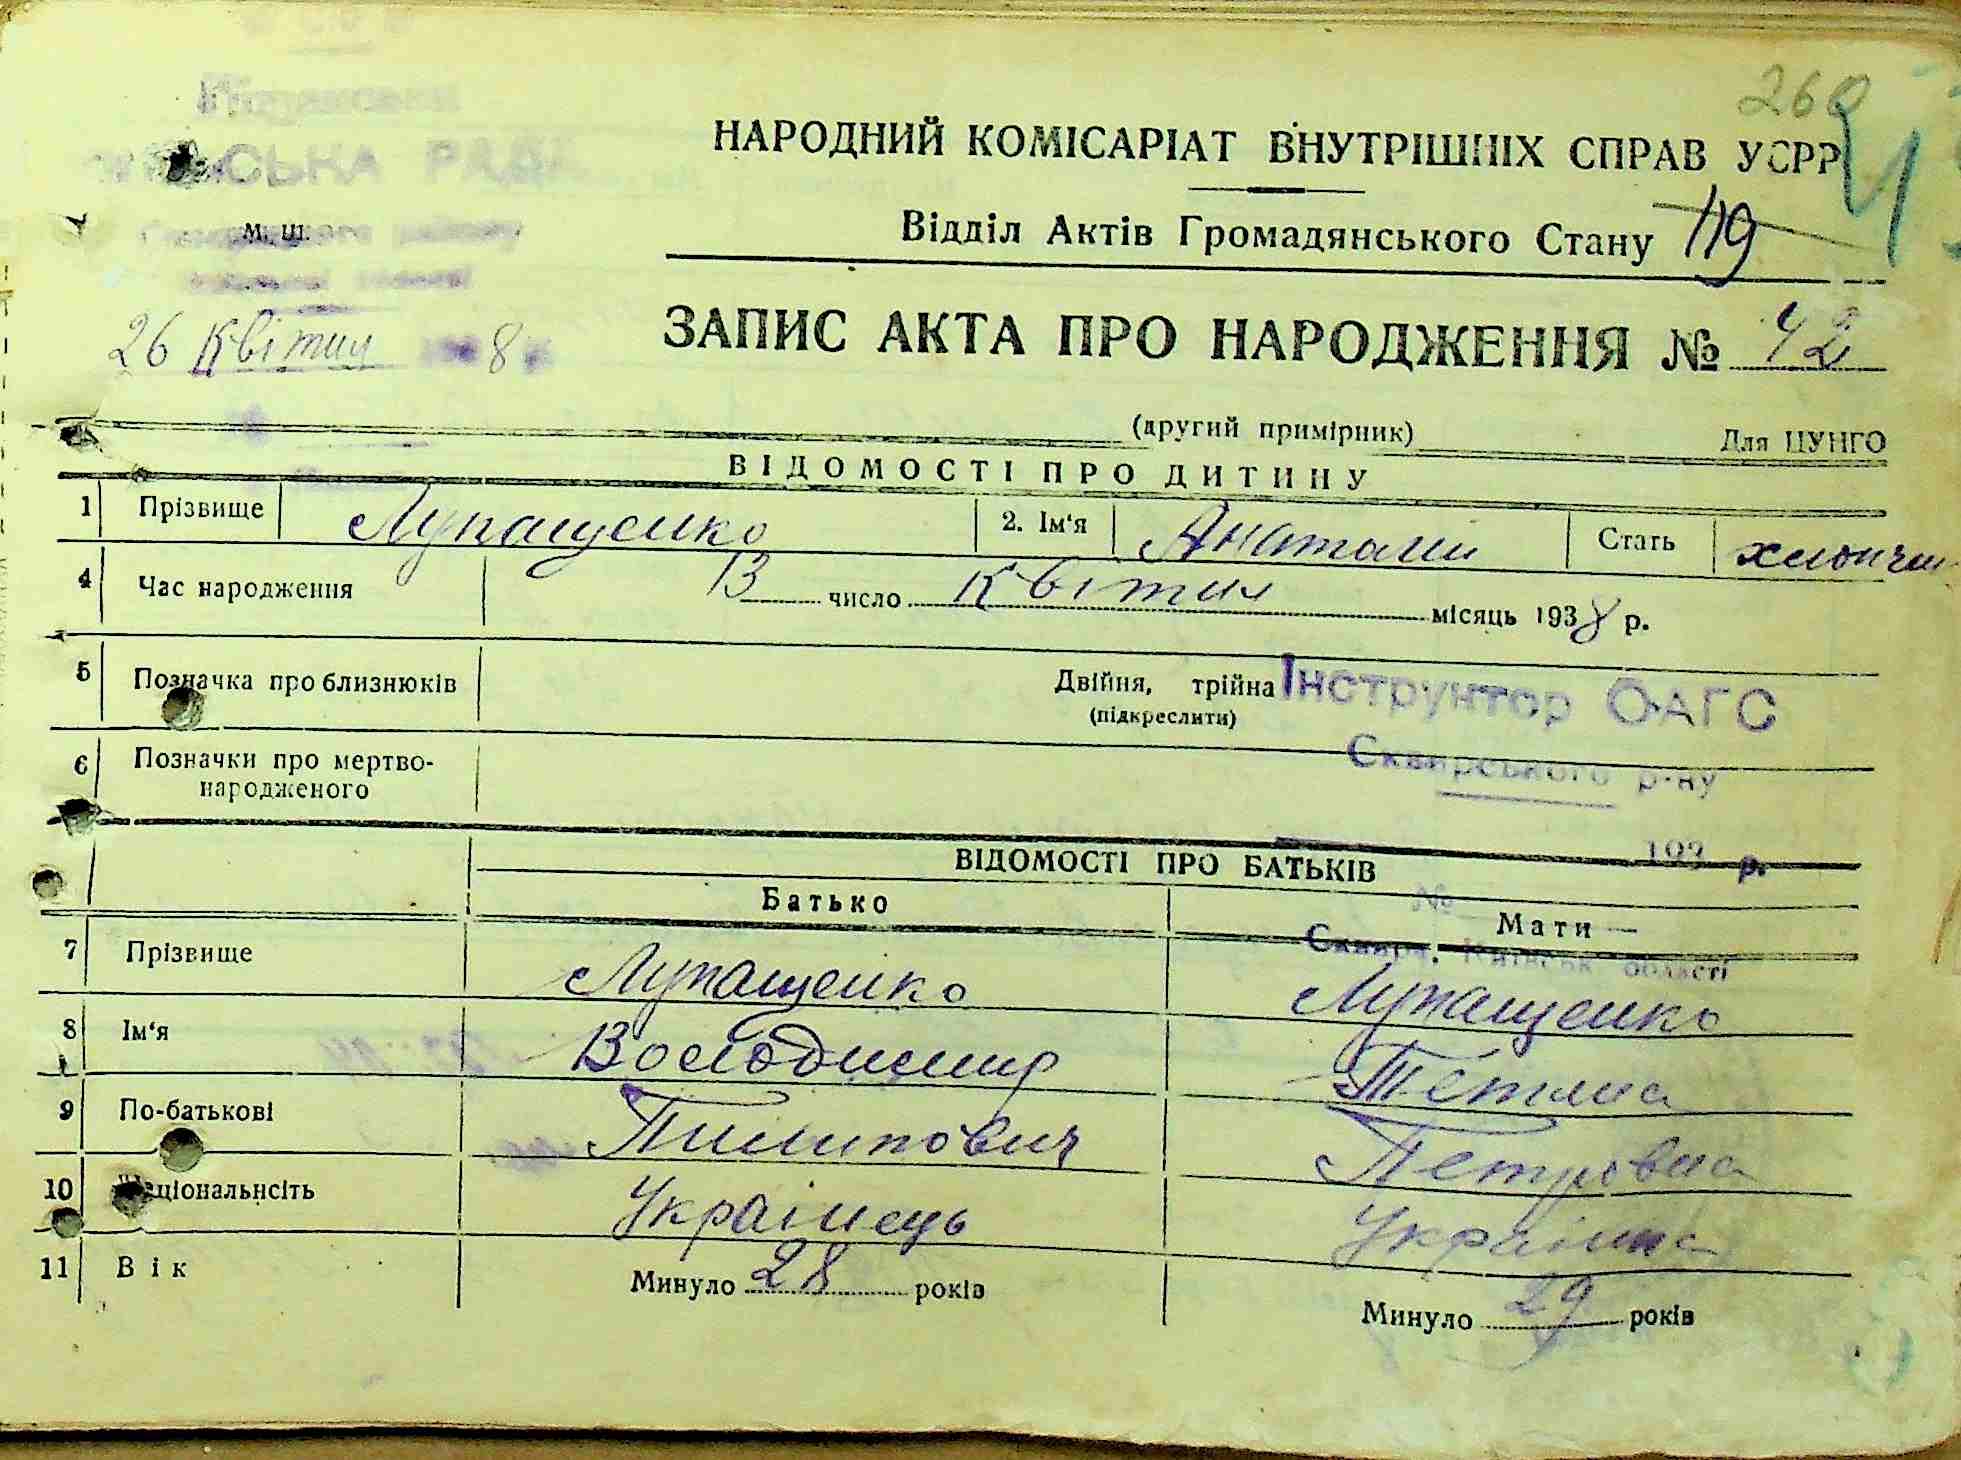 260
НАРОДНИЙ КОМІСАРІАТ ВНУТРІШНІХ СПРАВ УСРР
СЬКА РАДА
М. Ш.
району
Відділ Актів Громадянського Стану 119
26 Квітня 8 р.
ЗАПИС АКТА ПРО НАРОДЖЕННЯ № 42
(другий примірник) Для ЦУНГО
ВІДОМОСТІ ПРО ДИТИНУ
1 Прізвище Лупащенко 2. Ім'я Анатолій Стать хлопчик
4 Час народження 13 число Квітня місяць 1938 р.
5 Позначка про близнюків Двійня, трійна Інструктор ОАГС
(підкреслити)
Сквирського р-ну
6 Позначки про мертво-
народженого
193 р.
ВІДОМОСТІ ПРО БАТЬКІВ
№
Батько Мати
Сквира, Київськ. області
7 Прізвище Лупащенко Лупащенко
8 Ім'я Володимир Тетяна
9 По-батькові Пилипович Петровна
10 Національнсіть Українець Українка
11 Вік Минуло 28 років Минуло 29 років